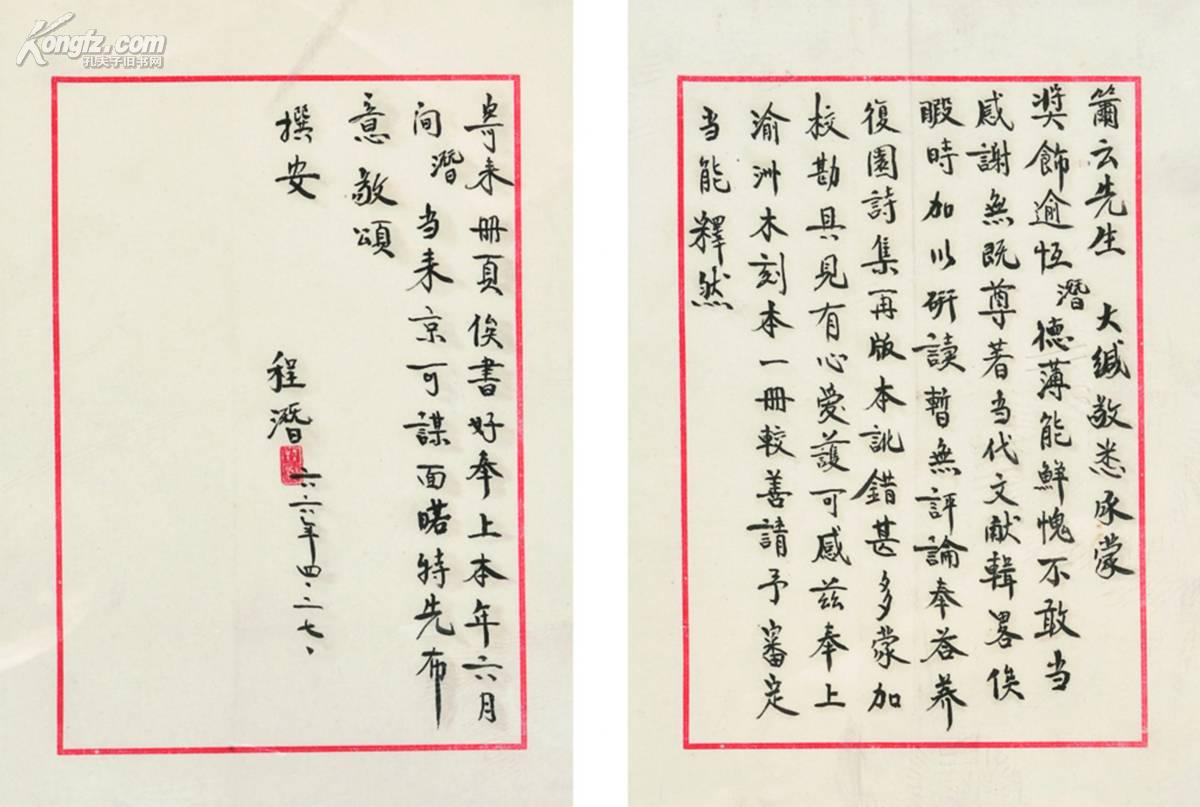 簫云先生 大緘敬悉承蒙
奖飾逾恆潛德薄能鮮愧不敢当
感謝無既尊著当代文献輯畧俟
暇時加以研讀暫無評論奉答养
復園詩集再版本訛錯甚多蒙加
校勘具見有心愛護可感兹奉上
渝洲木刻本一冊較善請予審定
当能釋然
寄来冊頁俟書好奉上本年六月
间潛当来京可謀面晤特先布
意敬頌
撰安
程潛
六六年四·二七、
Kongfz.com
孔夫子旧书网